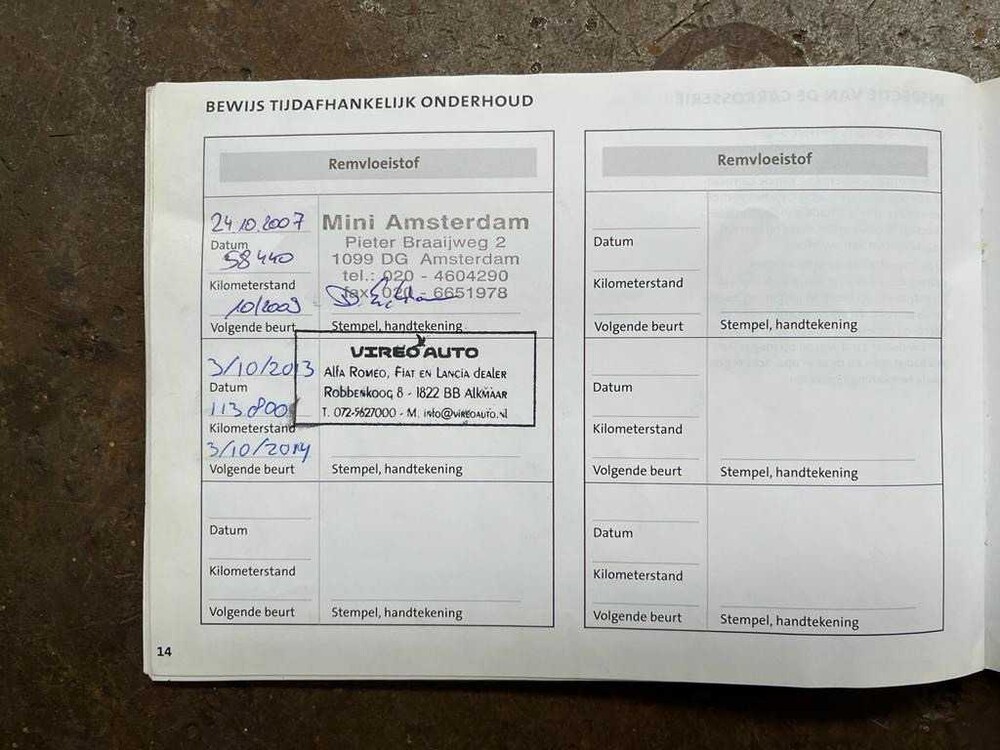 BEWIJS TIJDAFHANKELIJK ONDERHOUD
Remvloeistof
24.10.2007
Datum
58440
Kilometerstand
10/2009
Volgende beurt
Mini Amsterdam
Pieter Braaijweg 2
1099 DG Amsterdam
tel.: 020 - 4604290
fax: 020 - 6651978
Stempel, handtekening
3/10/2013
Datum
113.800
Kilometerstand
3/10/2014
Volgende beurt
VIREO AUTO
Alfa Romeo, Fiat en Lancia dealer
Robbenkoog 8 - 1822 BB Alkmaar
T. 072-5627000 - M. info@vireoauto.nl
Stempel, handtekening
Datum
Kilometerstand
Volgende beurt
Stempel, handtekening
Remvloeistof
Datum
Kilometerstand
Volgende beurt
Stempel, handtekening
Datum
Kilometerstand
Volgende beurt
Stempel, handtekening
Datum
Kilometerstand
Volgende beurt
Stempel, handtekening
14